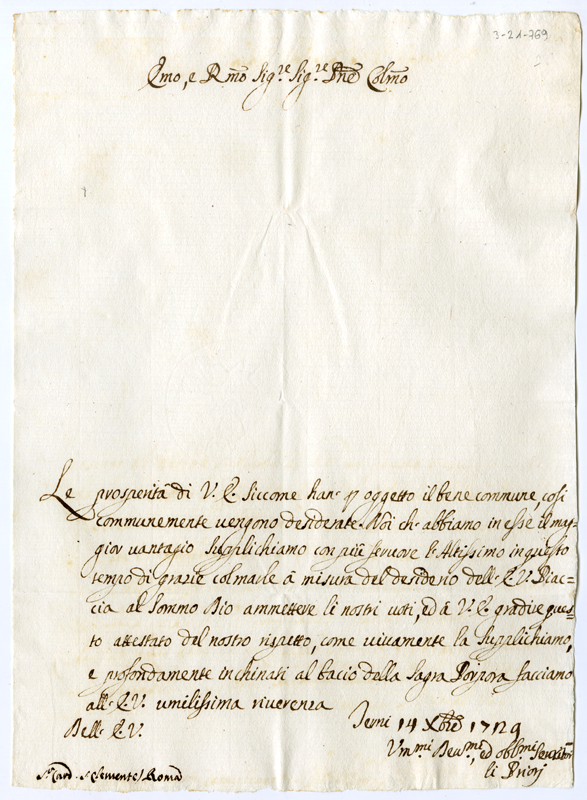 3-21-769
Emo, e Rmo Sig.re Sig.re Pne Colmo
Le prosperità di V. E. siccome han p oggetto il bene commune, così
communemente vengono desiderate. Noi che abbiamo in esse il mag-
gior vantagio supplichiamo con più fervore l'Altissimo in questo
tempo di grazie colmarle à misura del desiderio dell' E. V. Piac-
cia al Sommo Dio ammettere li nostri voti, ed à V. E. gradire ques-
to attestato del nostro rispetto, come vivamente la supplichiamo,
e profondamente inchinati al bacio della Sagra Porpora facciamo
all' E. V. umilissima riverenza
Dell' E. V.
Terni 14 Xbre 1729
Vmmi Devmi, ed obblmi Servitori
li Priori
S.r Card. S. Clemente / Roma